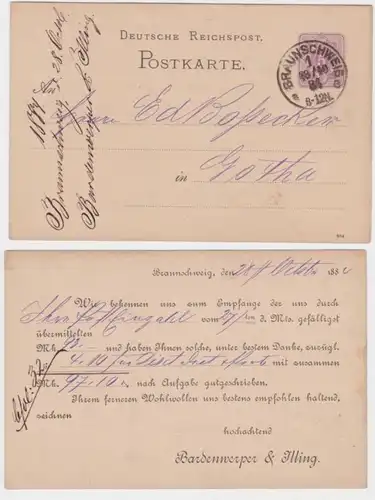 DEUTSCHE REICHSPOST.
POSTKARTE.
An
Herrn Ed Boßecker
in
Gotha
BRAUNSCHWEIG
1
8-12N.
Braunschweig
Bardenwerper & Illing
Braunschweig, den 28 October 188
Wir bekennen uns zum Empfange der uns durch
Ihre Posteinzahl. vom d. Mts. gefälligst
übermittelten
Mk. 93.- und haben Ihnen solche, unter bestem Danke, zuzügl.
4.10 für Disct Inct Porto mit zusammen
Mk. 97.10 nach Aufgabe gutgeschrieben.
Ihrem ferneren Wohlwollen uns bestens empfohlen haltend,
zeichnen
hochachtend
Bardenwerper & Illing.